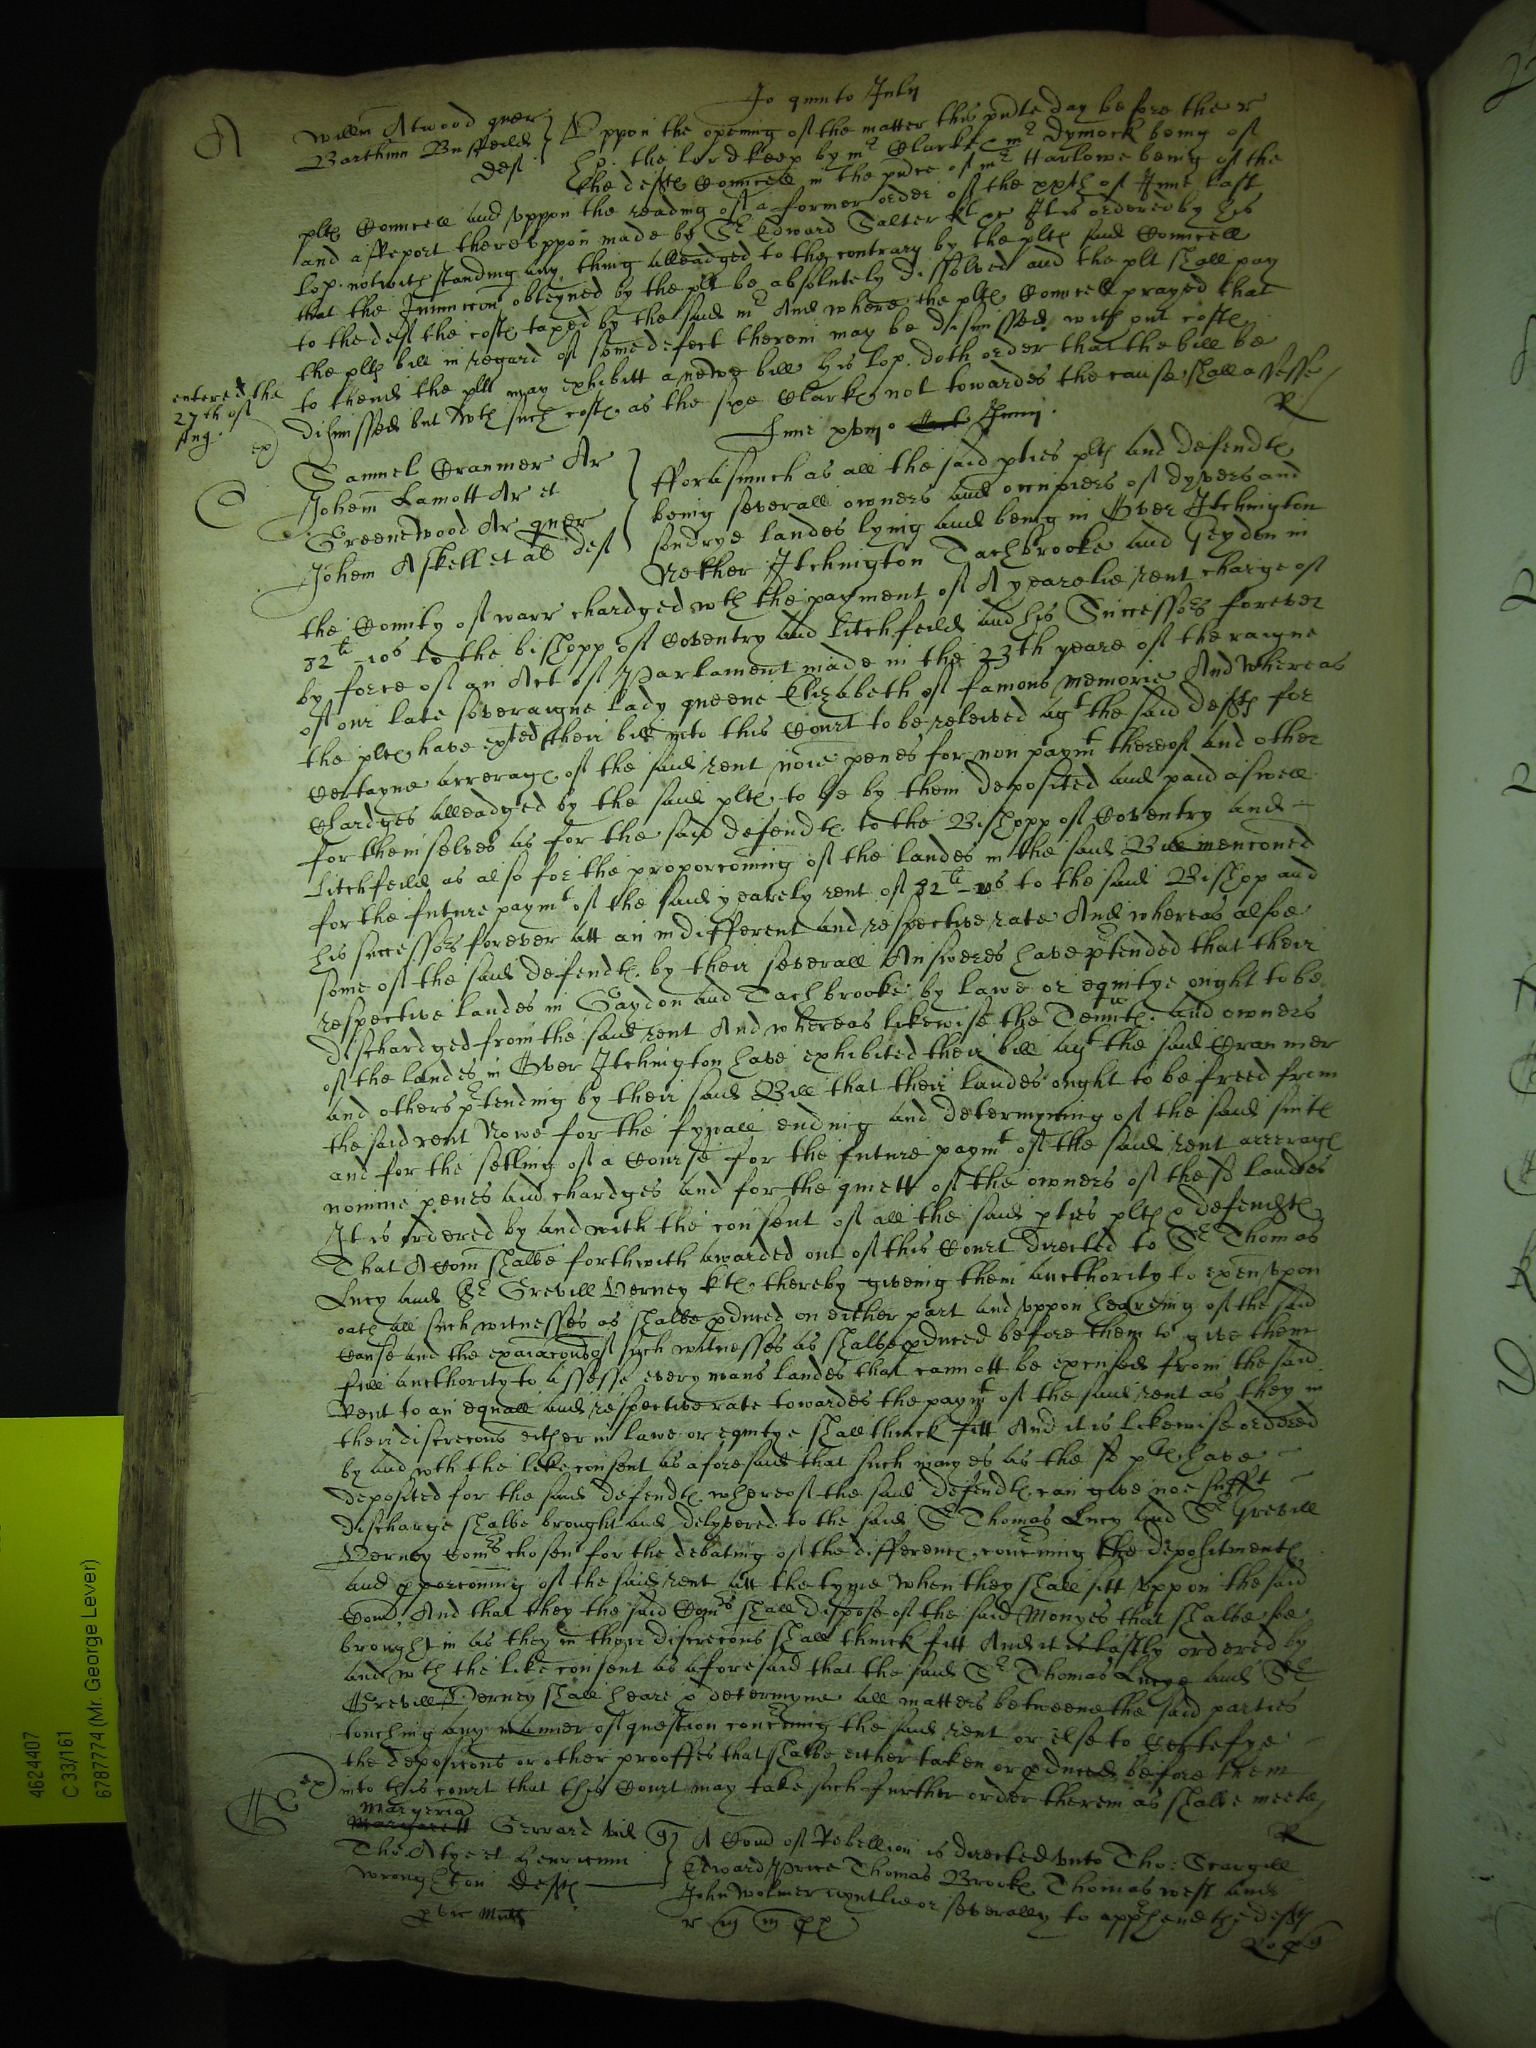 Jo quinto Julij
A
Willm Atwood quer
Barthmn Busfeild
def
Uppon the opening of the matter this pnte day before the r
ho: the lord keep by mr Clarke & mr Dymock being of
the deftes Councell in the pnce of mr Harlowe being of the
pltes Councell and uppon the reading of a former order of the xxth of June last
and a Report thereuppon made by Sr Edward Salter kt &c It is ordered by his
lop. notwithstanding any thing alleadged to the contrary by the pltes said Councell
that the Iniunccon obteyned by the plt be absolutely dissolved and the plt shall pay
to the deft the costes taxed by the said mr And where the pltes Councell prayed that
the pltes bill in regard of some defect therein may be dismissed with out costes
to thend the plt may exhibitt a newe bill his lop. doth order that the bill be
dismissed but wth such costes as the sixe Clarkes not towardes the cause shall assesse
R
entered the
27th of
Aug.
ex
June xvmo Junij.
C
Samuel Cranmer Ar
Johem Lamott Ar et
Greenewood Ar quer
Johem Askell et al def
fforasmuch as all the said pties pltes and defendtes
being severall owners and occupiers of dyvers and
sondrye landes lying and being in Over Itchington
Nether Itchington Tachbrooke and Geydon in
the County of warr chardged wth the payment of A yearelie rent charge of
82li 10s to the bishopp of Coventry and Litchfeild and his Successors forever
by force of an Act of Parlament made in the 23th yeare of the raigne
of our late soveraigne lady queene Elizabeth of famous memorie And whereas
the pltes have exted their bill into this Court to be releived agt the said deftes for
certayne arrerages of the said rent noie penes for non paymt thereof and other
Chardges alleadged by the said pltes to be by them deposited and paid aswell
for themselves as for the said defendtes to the Bishopp of Coventry and
Litchfeild as also for the proporconing of the landes in the said Bill menconed
for the future paymt of the said yearely rent of 82li 10s to the said Bishop and
his successors forever att an indifferent and respective rate And whereas alsoe
some of the said defendtes by their severall Answeres have ptended that their
respective landes in Gaydon and Tachbrooke by lawe or equitye ought to be
dischardged from the said rent And whereas likewise the Tenntes and owners
of the landes in Over Itchington have exhibited their bill agt the said Cranmer
and others ptending by their said Bill that their landes ought to be freed from
the said rent Nowe for the fynall ending and determyning of the said suites
and for the setling of a Course for the future paymt of the said rent arrerages
nomine penes and chardges and for the quiett of the owners of the sd landes
It is ordered by and with the consent of all the said pties pltes & defendtes
That A Com shalbe forthwith awarded out of this Court directed to Sr Thomas
Lucy and Sr Grevill Verney ktes thereby giveing them aucthority to exen uppon
oath all such witnesses as shalbe pduced on either part and uppon heareing of the said
Cause and the exaiacons of such witnesses as shalbe pduced before them to give them
full aucthority to assesse every mans landes that cannott be excused from the said
Rent to an equall and respective rate towardes the paymt of the said rent as they in
their discrecons either in lawe or equitye shall thinck fitt And it is likewise ordered
by and wth the like consent as aforesaid that such monyes as the sd pltes have
deposited for the said defendtes whereof the said defendtes can give noe sufft
discharge shalbe brought and delyvered to the said Sr Thomas Lucy and Sr Grevill
Verney Comrs chosen for the debating of the differences concning the depositmentes
and pporconing of the said rent att the tyme when they shall sitt uppon the said
Com And that they the said Comrs shall dispose of the said Monyes that shalbe soe
brought in as they in their discrecons shall thinck fitt And it is lastly ordered by
and wth the like consent as aforesaid that the said Sr Thomas Lucye and Sr
Grevill Verney shall heare & determyne all matters betweene the said parties
touching any manner of question concning the said rent or else to Certefye
the deposicons or other prooffes that shalbe either taken or pduced before them
into this court that this Court may take such further order therein as shalbe meete
R
ex
Margeria
Margarett Gerrard vid
Tho: Atye et Henricum
Wroughton deftes
A Com of Rebellion is directed unto Tho: Scargill
Edward Price Thomas Brockes Thomas west and
John Wolmer ioyntlie or severally to apphend the deftes
4624407
C 33/161
6787774 (Mr. George Lever)